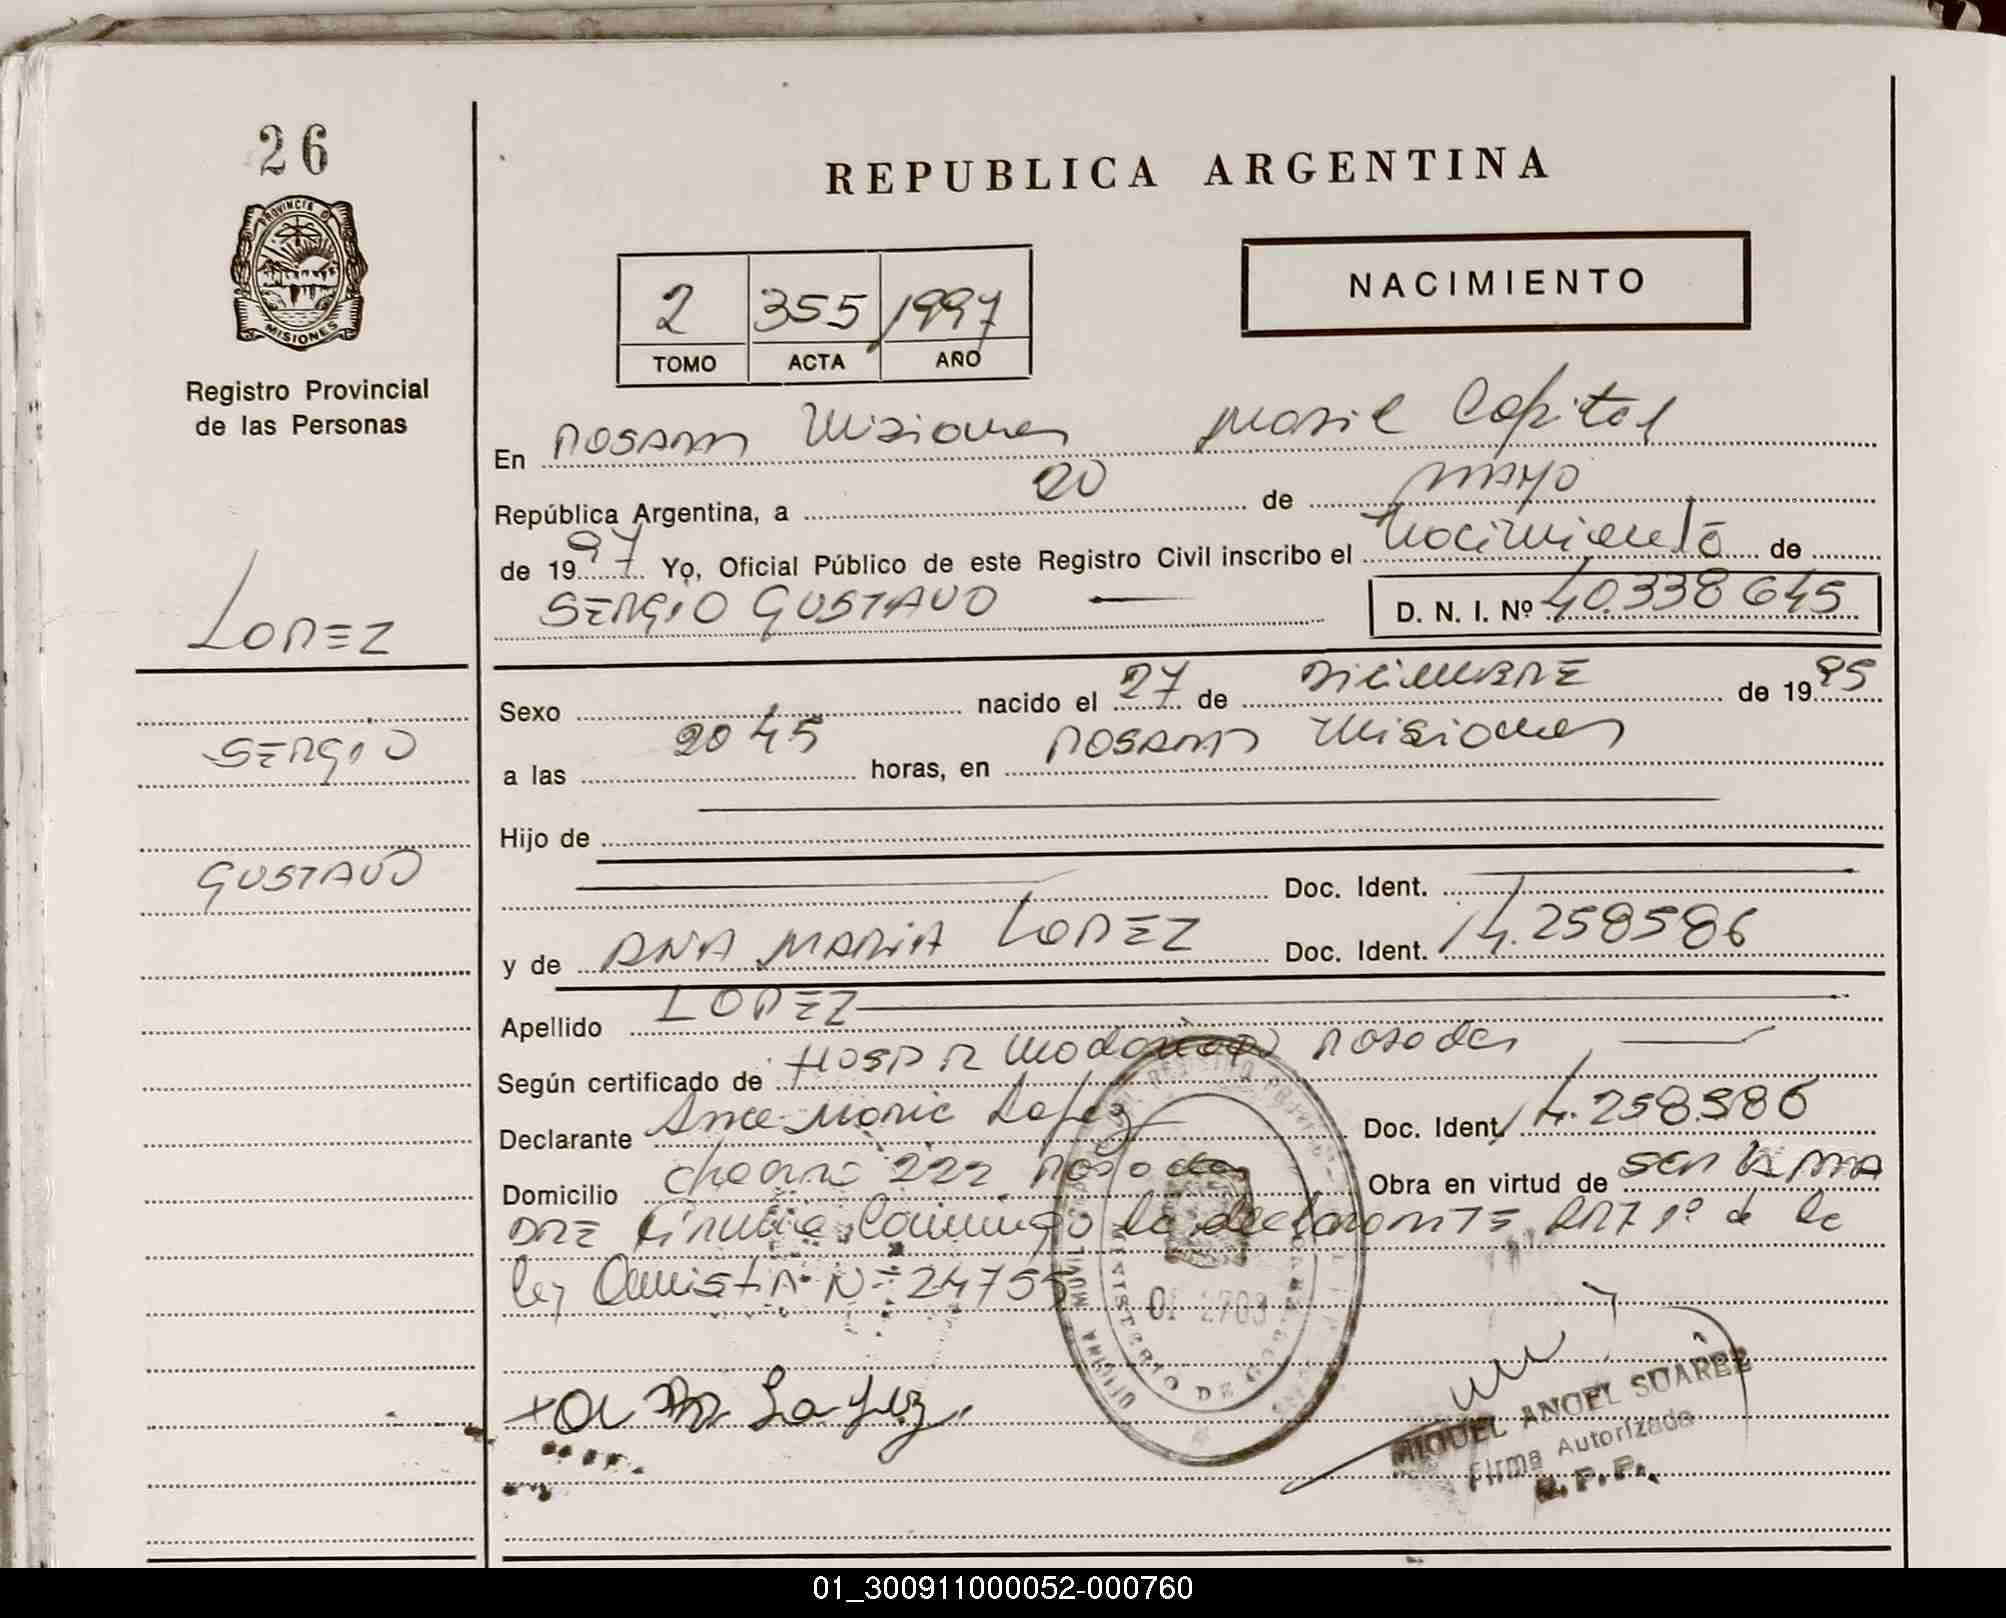 26
PROVINCIA DE
MISIONES
Registro Provincial
de las Personas
REPUBLICA ARGENTINA
NACIMIENTO
2 355 1997
TOMO ACTA AÑO
En POSADAS Misiones Movil Capital
República Argentina, a 20 de MAYO
de 1997 Yo, Oficial Público de este Registro Civil inscribo el Nacimiento de
SERGIO GUSTAVO D. N. I. Nº 40.338645
LOPEZ
SERGIO
GUSTAVO
Sexo nacido el 27 de DICIEMBRE de 1995
a las 20 45 horas, en POSADAS Misiones
Hijo de
Doc. Ident.
y de ANA MARIA LOPEZ Doc. Ident. 14.258586
Apellido LOPEZ
Según certificado de HOSP R Madariaga Posadas
Declarante Ana Maria Lopez Doc. Ident. 14.258.586
Domicilio 222 Posadas Obra en virtud de SER LA MA
DRE la declarante ART 1º de la
ley Amnistia Nº 24755
OFICINA MOVIL
MINISTERIO DE
Lopez
MIGUEL ANGEL SUAREZ
Firma Autorizada
R. P. P.
01_300911000052-000760